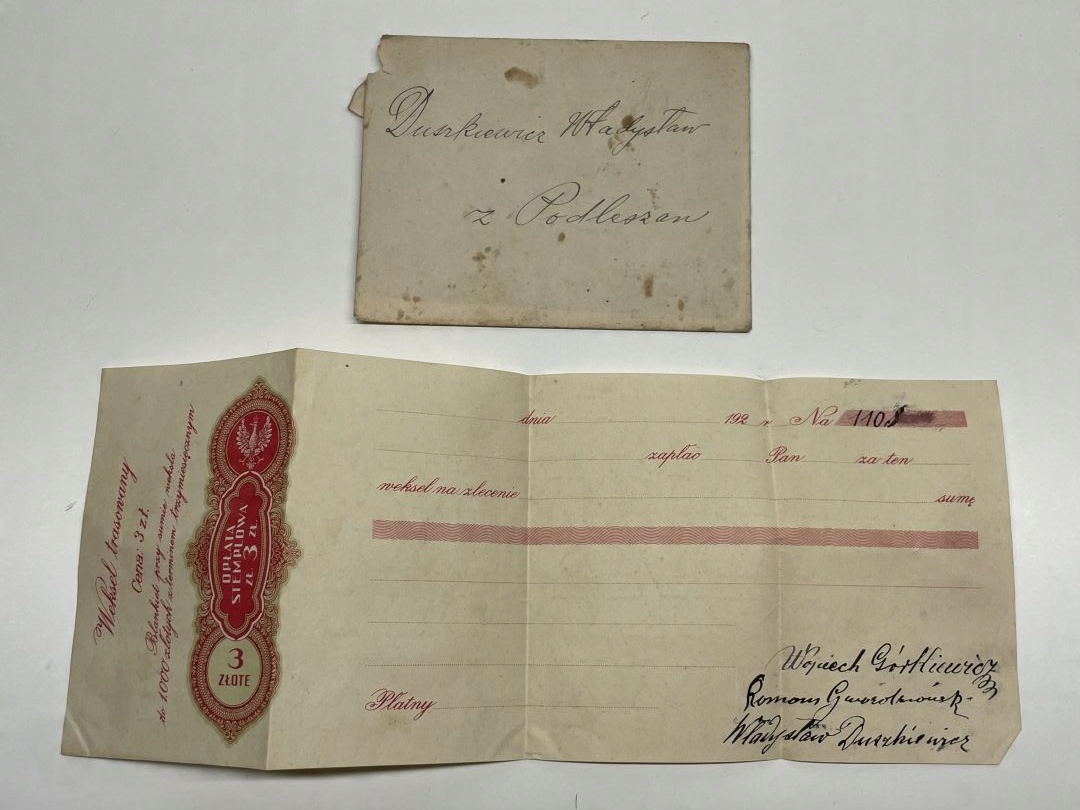 Duszkiewicz Władysław
z Podleszan
Weksel trasowany
Cena: 3 zł.
Blankiet przy sumie weksla
do 1000 złotych z terminem trzymiesięcznym
OPŁATA
STEMPLOWA
ZŁ. 3 ZŁ.
3
ZŁOTE
dnia 192 r Na 110
zapłac Pan za ten
weksel na zlecenie sumę
Płatny
Wojciech Górkiewicz
Roman
Władysław Duszkiewicz